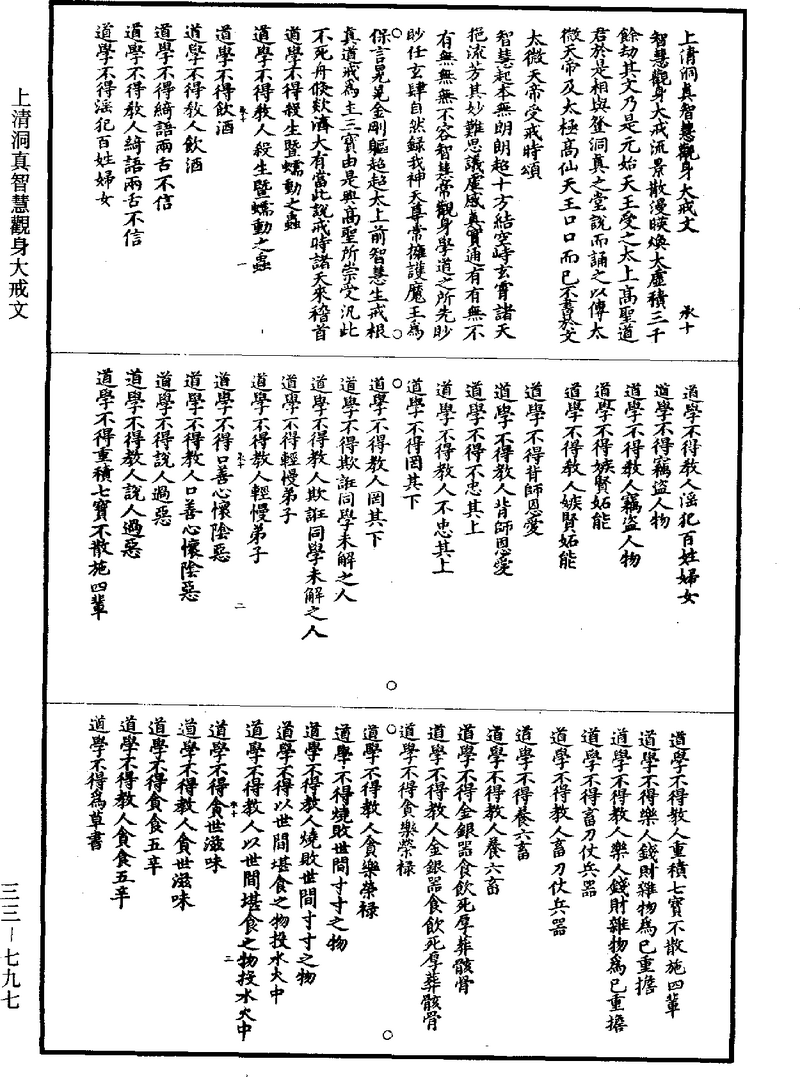 上清洞真智慧觀身大戒文
三三一七九七
上清洞真智慧觀身大戒文 承十
智慧觀身大戒流景散漫暎煥太虛積三千
餘劫其文乃是元始天王受之太上高聖道
君於是相與登洞真之堂說而誦之以傳太
微天帝及太極高仙天王口口而已不書於文
太微天帝受戒時頌
智慧起本無朗朗超十方結空峙玄霄諸天
挹流芳其妙難思議虛感真實通有有無不
有無無無不容智慧常觀身學道之所先眇
眇任玄肆自然錄我神天尊常擁護魔王為
保言晃晃金剛軀超超太上前智慧生戒根
真道戒為主三寶由是興高聖所崇受汎此
不死舟倐欻濟大有當此說戒時諸天來稽首
道學不得殺生暨蠕動之蟲
道學不得教人殺生暨蠕動之蟲
承十 一
道學不得飲酒
道學不得教人飲酒
道學不得綺語兩舌不信
道學不得教人綺語兩舌不信
道學不得淫犯百姓婦女
道學不得教人淫犯百姓婦女
道學不得竊盜人物
道學不得教人竊盜人物
道學不得嫉賢妬能
道學不得教人嫉賢妬能
道學不得背師恩愛
道學不得教人背師恩愛
道學不得不忠其上
道學不得教人不忠其上
道學不得罔其下
道學不得教人罔其下
道學不得欺誑同學未解之人
道學不得教人欺誑同學未解之人
道學不得輕慢弟子
道學不得教人輕慢弟子
承十 二
道學不得口善心懷陰惡
道學不得教人口善心懷陰惡
道學不得說人過惡
道學不得教人說人過惡
道學不得重積七寶不散施四輩
道學不得教人重積七寶不散施四輩
道學不得樂人錢財雜物為已重擔
道學不得教人樂人錢財雜物為已重擔
道學不得畜刀仗兵器
道學不得教人畜刀仗兵器
道學不得養六畜
道學不得教人養六畜
道學不得金銀器食飲死厚葬骸骨
道學不得教人金銀器食飲死厚葬骸骨
道學不得貪樂榮祿
道學不得教人貪樂榮祿
道學不得燒敗世間寸寸之物
道學不得教人燒敗世間寸寸之物
道學不得以世間堪食之物投水火中
道學不得教人以世間堪食之物投水火中
承十 三
道學不得貪世滋味
道學不得教人貪世滋味
道學不得貪食五辛
道學不得教人貪食五辛
道學不得為草書